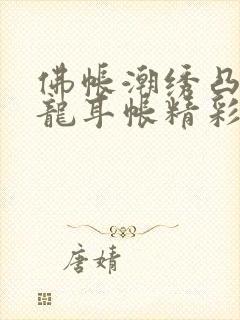 佛帐潮绣凸
龍耳帐精彩
唐婧